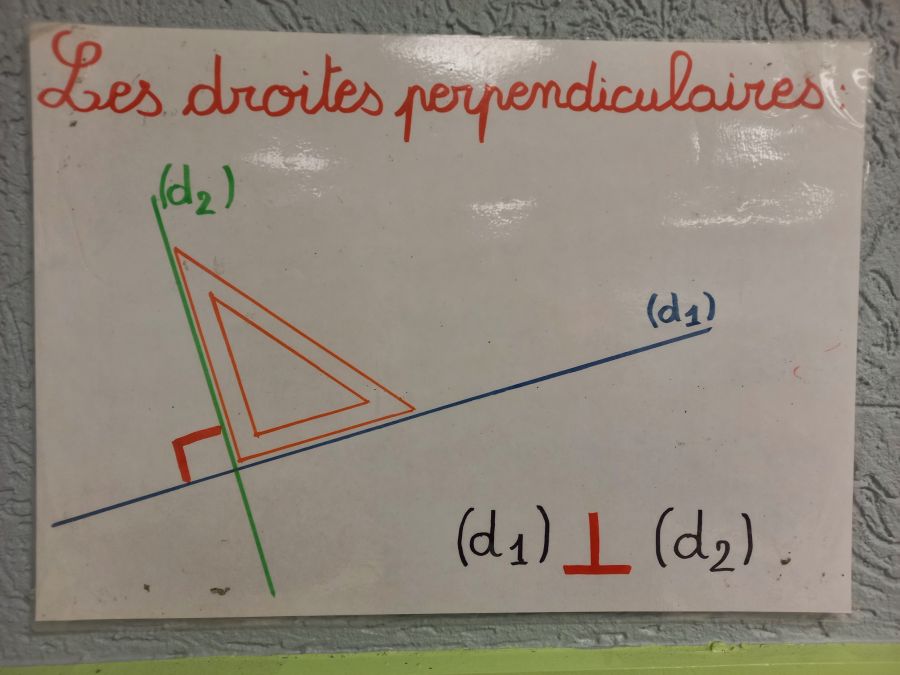 Les droites perpendiculaires :
(d2)
(d1)
(d1) ⊥ (d2)